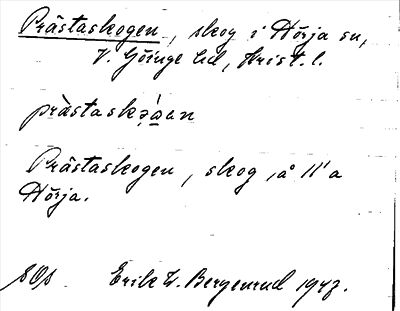 Prästaskogen, skog i Hörja sn,
V. Göinge hd, Krist. l.
Prästaskogen, skog, å N:a
Hörja.
SOs Erik W. Bergenrud 1947.